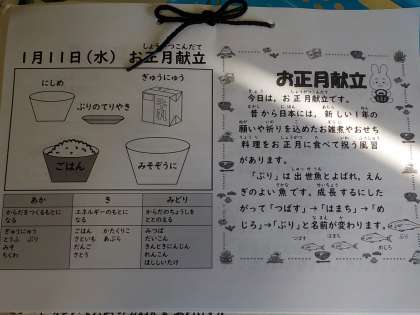 しょうがつこんだて
1月11日(水) お正月献立
にしめ
ぎゅうにゅう
ぶりのてりやき
牛乳
ごはん
みそぞうに
あか
き
みどり
からだをつくるもとになる
エネルギーのもとになる
からだのちょうしをととのえる
ぎゅうにゅう
とうふ ぶり
みそ
ちくわ
ごはん かたくりこ
さといも あぶら
だんご
さとう
みつば
だいこん
きんときにんじん
れんこん
ほししいたけ
お正月献立
今日は、お正月献立です。
昔から日本には、新しい1年の
願いや祈りを込めたお雑煮やおせち
料理をお正月に食べて祝う風習
があります。
「ぶり」は出世魚とよばれ、えん
ぎのよい魚です。成長するにした
がって「つばす」→「はまち」→「め
じろ」→「ぶり」と名前が変わります。
つばす
はまち
めじろ
ぶり